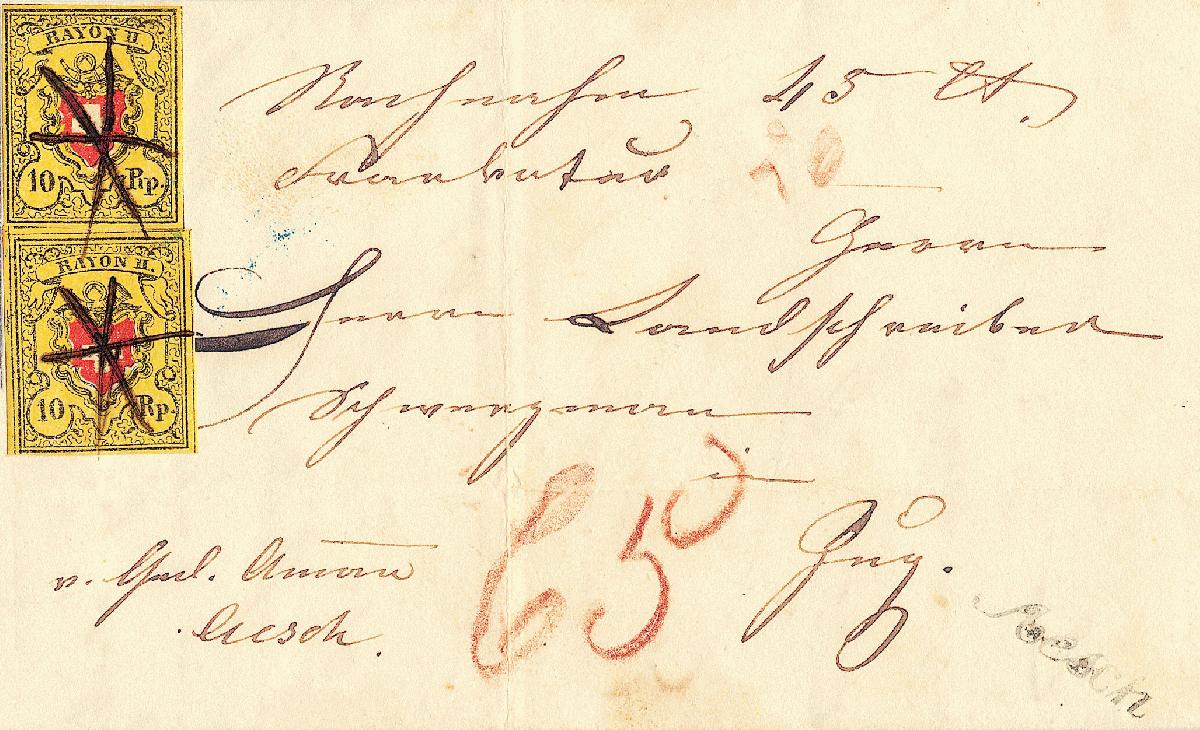 RAYON II.
10 Rp.
RAYON II.
10 Rp.
Nachnahm 45 Ct.
Frankatur 20
Herrn
Herrn Landschreiber
Schwerzman
in
Zug.
65
v. Aman
Aesch.
Aesch